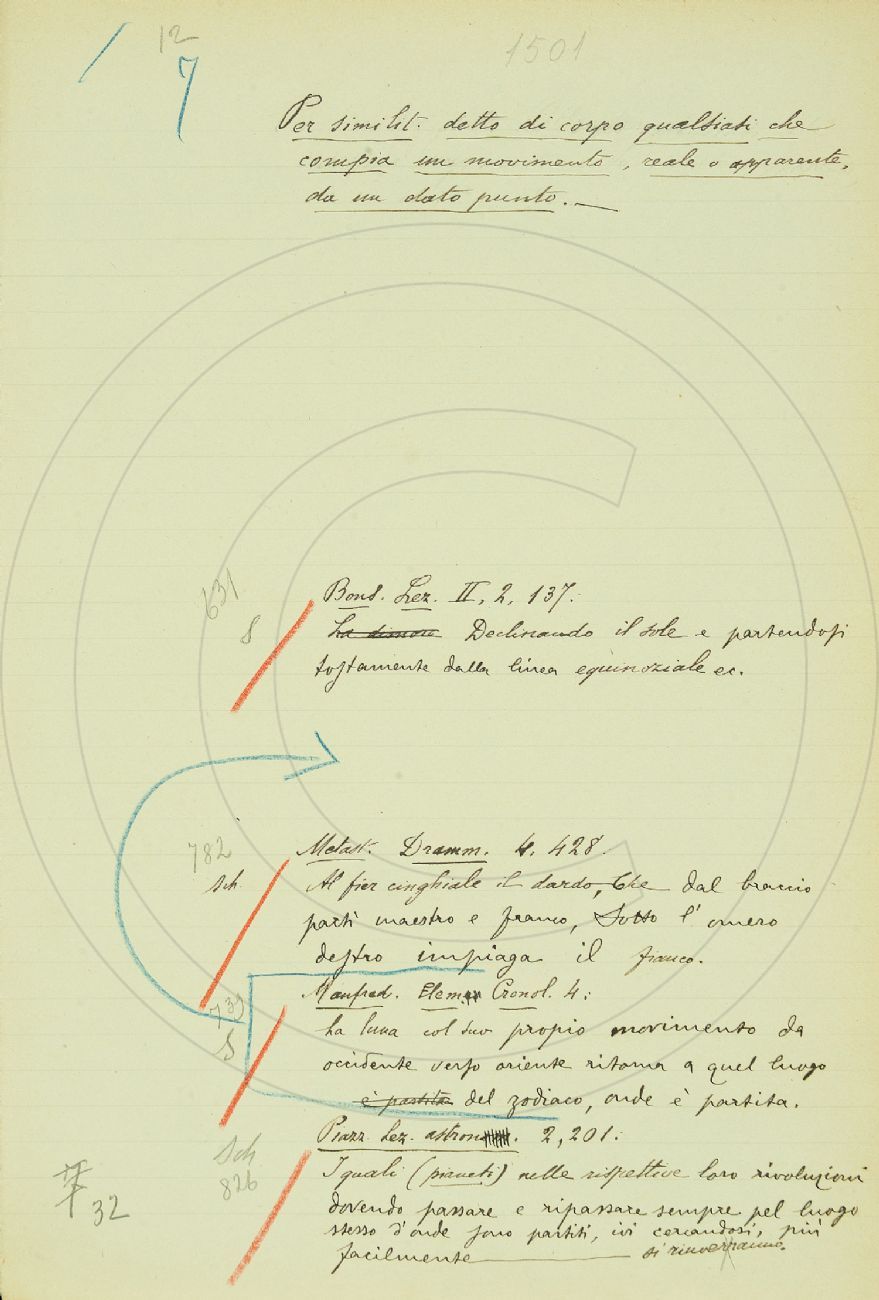 12
7
1501
Per similit. detto di corpo qualsiasi che
compia un movimento, reale o apparente,
da un dato punto. —
631
S
Bond. Lez. II, 2, 137:
Declinando il sole e partendosi
tostamente dalla linea equinoziale ec.
782
Sch.
Metast. Dramm. 4. 428.
Al fier cinghiale il dardo, Che dal braccio
partì maestro e franco, Sotto l'omero
destro impiaga il fianco.
739
S
Manfred. Elem. Cronol. 4:
La luna col suo propio movimento da
occidente verso oriente ritorna a quel luogo
è partita del zodiaco, onde è partita.
Sch
826
Piazz. Lez. astron. 2, 201:
I quali (pianeti) nelle rispettive loro rivoluzioni
dovendo passare e ripassare sempre pel luogo
stesso d'onde sono partiti, ivi cercandosi, più
facilmente — si rinverranno.
32